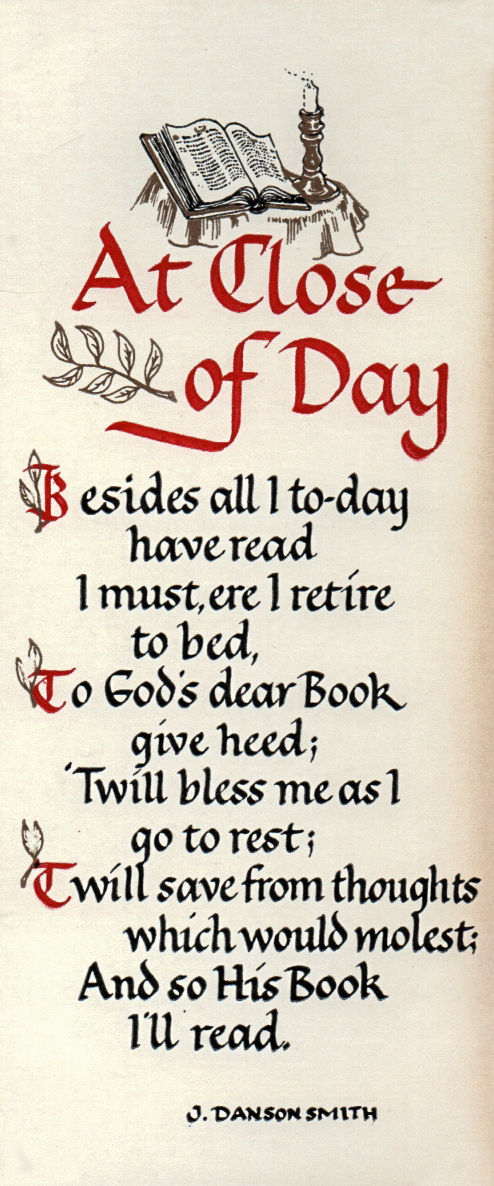 At Close
of Day
Besides all I to-day
have read
I must, ere I retire
to bed,
To God's dear Book
give heed;
'Twill bless me as I
go to rest;
Twill save from thoughts
which would molest;
And so His Book
I'll read.
J. DANSON SMITH